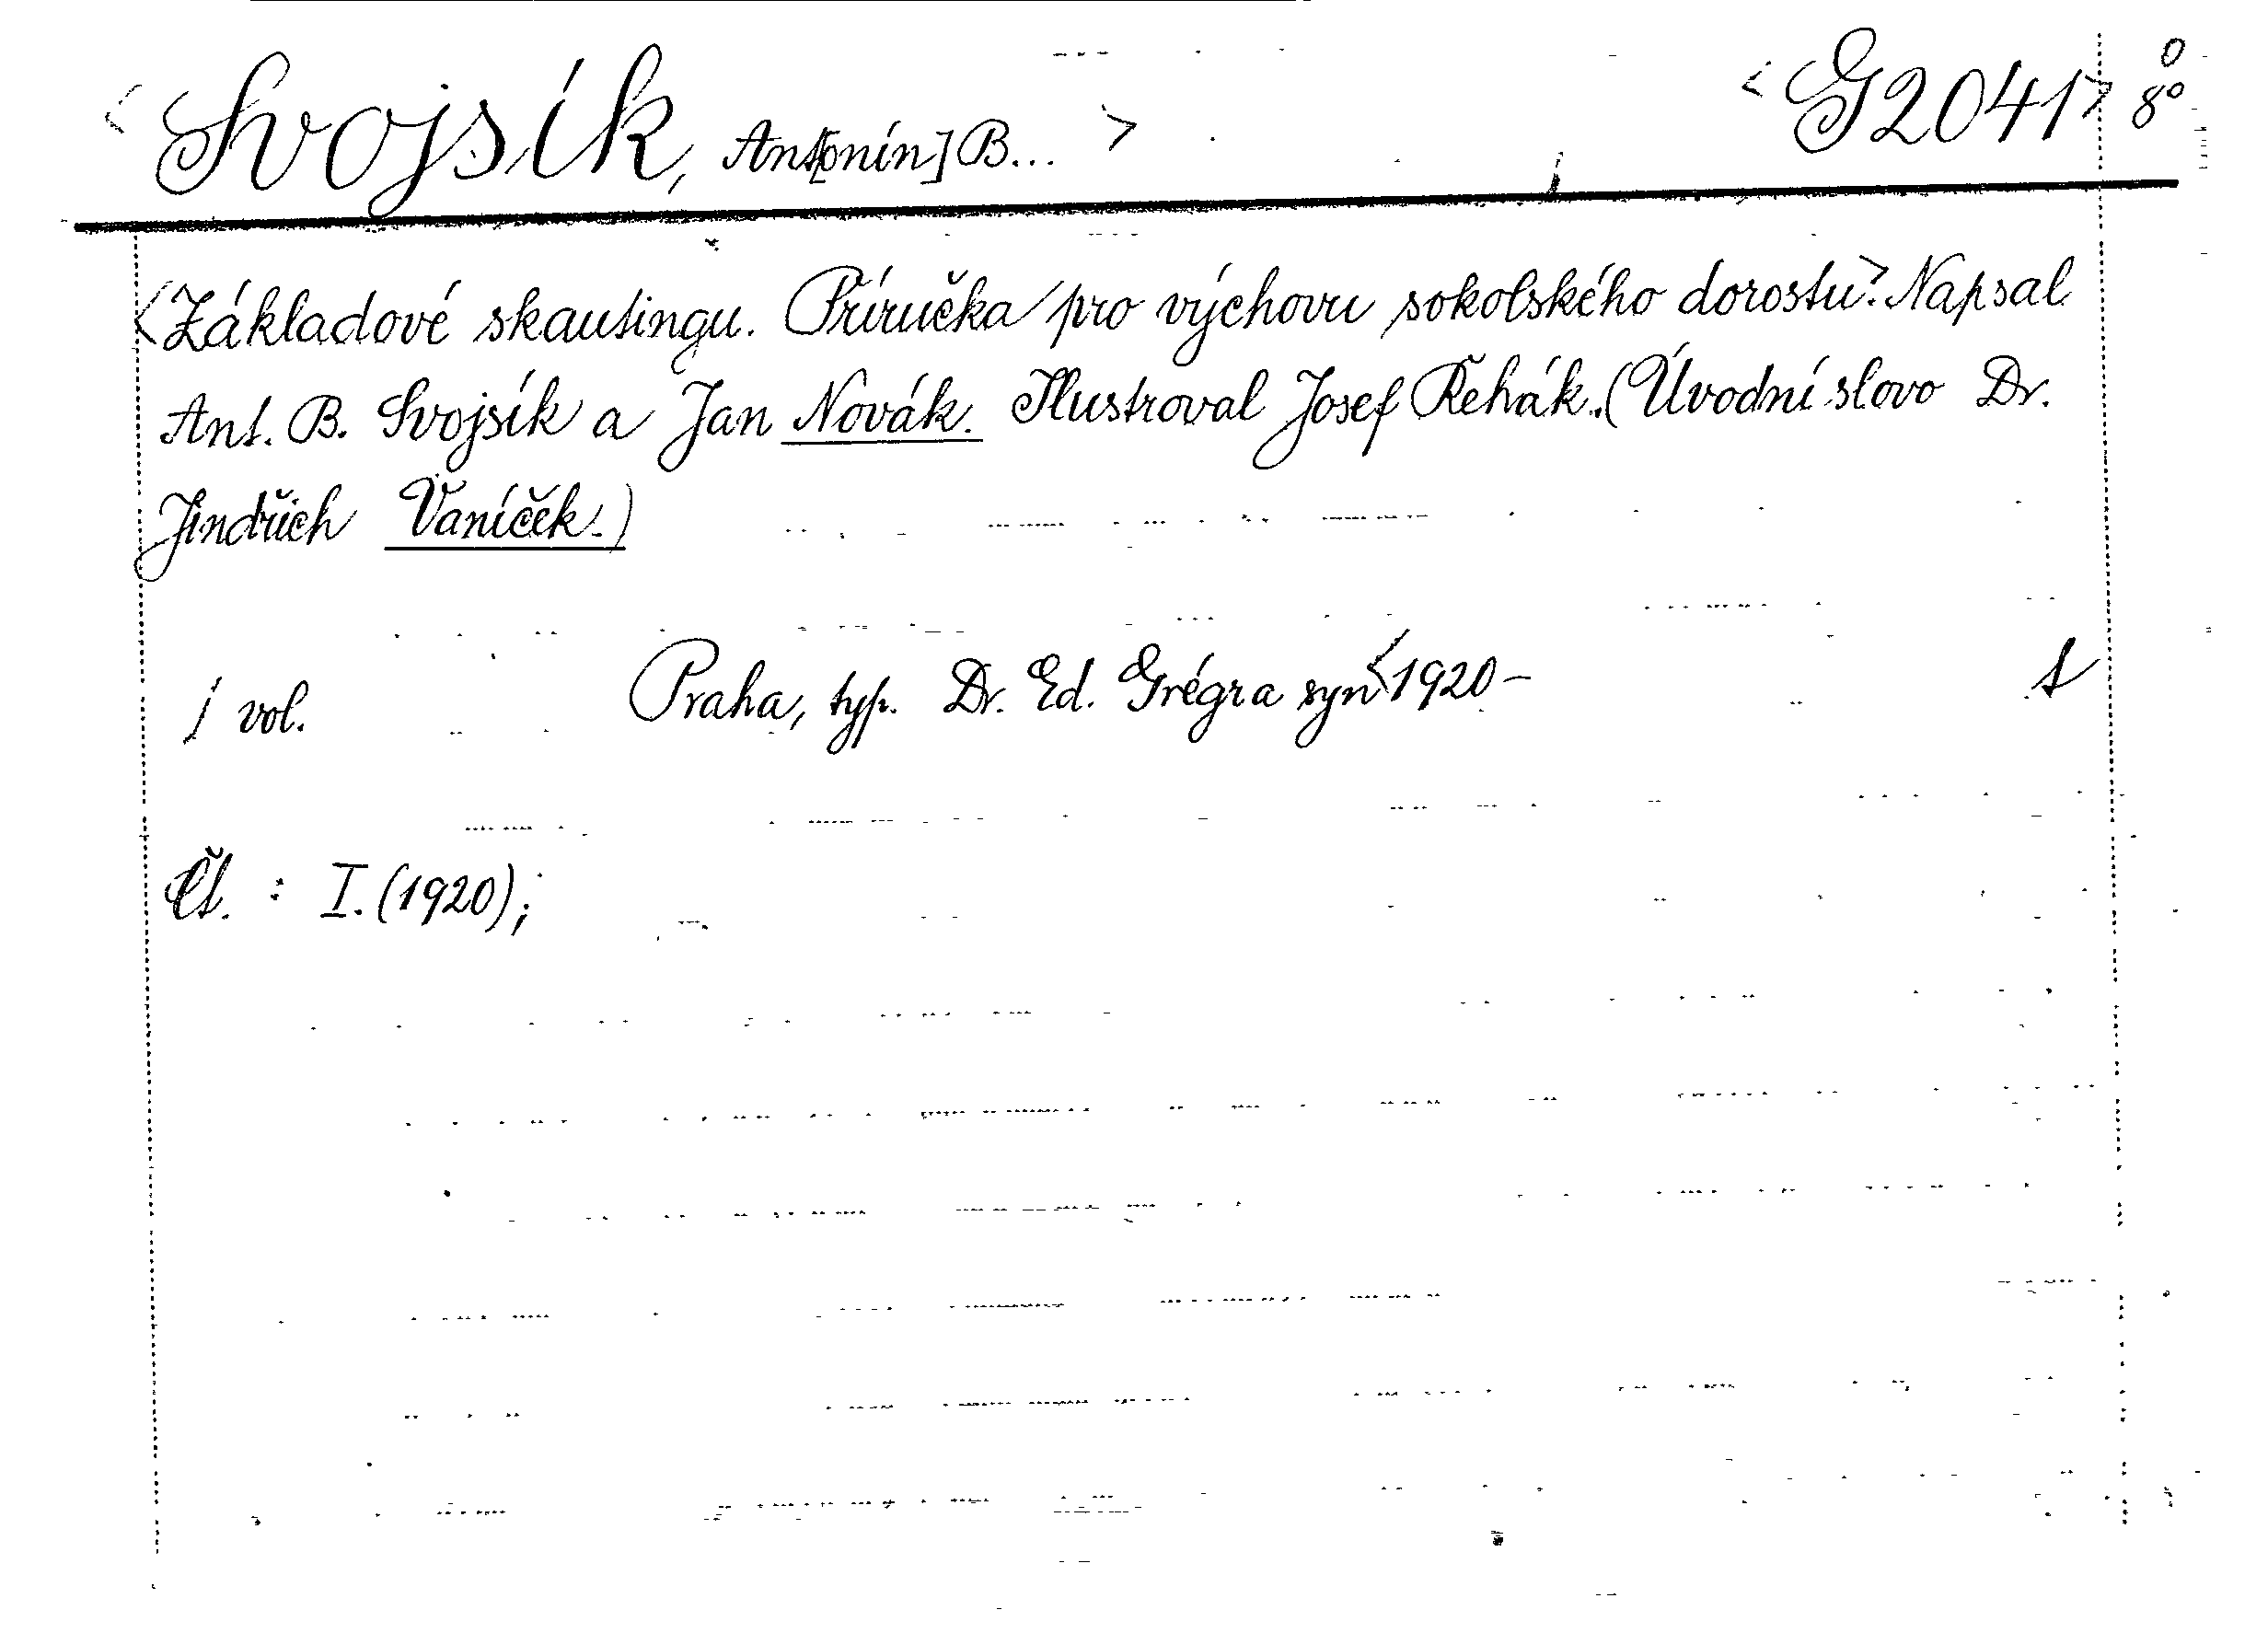 <Svojsík, Ant[onín] B... > <G 2041> 8°
<Základové skautingu. Příručka pro výchovu sokolského dorostu>. Napsal
Ant. B. Svojsík a Jan Novák. Ilustroval Josef Řehák. (Úvodní slovo Dr.
Jindřich Vaníček.)
/ vol. Praha, typ. Dr. Ed. Grégra syn <1920 -
Čt. : I. (1920);